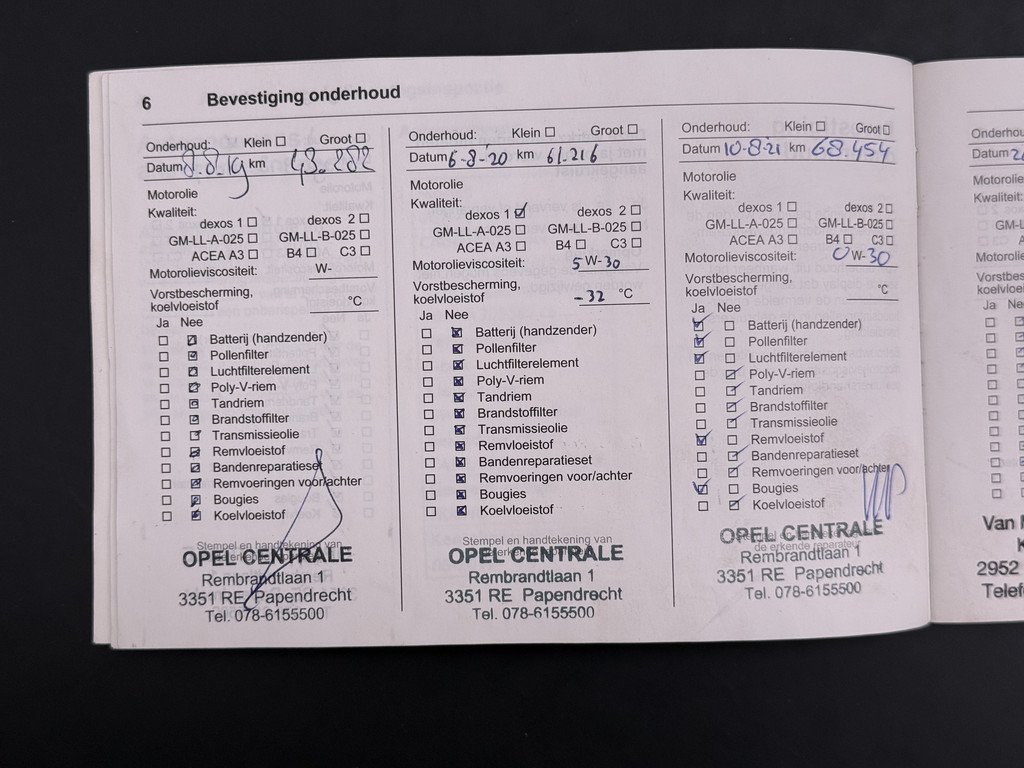 6 Bevestiging onderhoud
Onderhoud: Klein ☐ Groot ☐
Datum 8.8.19 km 43.282
Motorolie
Kwaliteit:
dexos 1 ☐ dexos 2 ☐
GM-LL-A-025 ☐ GM-LL-B-025 ☐
ACEA A3 ☐ B4 ☐ C3 ☐
Motorolieviscositeit: W-
Vorstbescherming,
koelvloeistof °C
Ja Nee
☐ ☑ Batterij (handzender)
☐ ☑ Pollenfilter
☐ ☑ Luchtfilterelement
☐ ☑ Poly-V-riem
☐ ☑ Tandriem
☐ ☑ Brandstoffilter
☐ ☑ Transmissieolie
☐ ☑ Remvloeistof
☐ ☑ Bandenreparatieset
☐ ☑ Remvoeringen voor/achter
☐ ☑ Bougies
☐ ☑ Koelvloeistof
Stempel en handtekening van
OPEL CENTRALE
Rembrandtlaan 1
3351 RE Papendrecht
Tel. 078-6155500
Onderhoud: Klein ☐ Groot ☐
Datum 6-8-'20 km 61.216
Motorolie
Kwaliteit:
dexos 1 ☑ dexos 2 ☐
GM-LL-A-025 ☐ GM-LL-B-025 ☐
ACEA A3 ☐ B4 ☐ C3 ☐
Motorolieviscositeit: 5 W-30
Vorstbescherming,
koelvloeistof -32 °C
Ja Nee
☐ ☒ Batterij (handzender)
☐ ☒ Pollenfilter
☐ ☒ Luchtfilterelement
☐ ☒ Poly-V-riem
☐ ☒ Tandriem
☐ ☒ Brandstoffilter
☐ ☒ Transmissieolie
☐ ☒ Remvloeistof
☐ ☒ Bandenreparatieset
☐ ☒ Remvoeringen voor/achter
☐ ☒ Bougies
☐ ☒ Koelvloeistof
Stempel en handtekening van
OPEL CENTRALE
Rembrandtlaan 1
3351 RE Papendrecht
Tel. 078-6155500
Onderhoud: Klein ☐ Groot ☐
Datum 10-8-21 km 68.454
Motorolie
Kwaliteit:
dexos 1 ☐ dexos 2 ☐
GM-LL-A-025 ☐ GM-LL-B-025 ☐
ACEA A3 ☐ B4 ☐ C3 ☐
Motorolieviscositeit: 0 W-30
Vorstbescherming,
koelvloeistof °C
Ja Nee
☑ ☐ Batterij (handzender)
☑ ☐ Pollenfilter
☑ ☐ Luchtfilterelement
☐ ☑ Poly-V-riem
☐ ☑ Tandriem
☐ ☑ Brandstoffilter
☐ ☑ Transmissieolie
☑ ☐ Remvloeistof
☐ ☑ Bandenreparatieset
☐ ☑ Remvoeringen voor/achter
☑ ☐ Bougies
☐ ☑ Koelvloeistof
OPEL CENTRALE
de erkende reparateur
Rembrandtlaan 1
3351 RE Papendrecht
Tel. 078-6155500
Onderhou
Datum
Motorolie
Kwaliteit:
GM-LL
A
Motorolie
Vorstbes
koelvloei
Ja Nee
Van
2952
Telef